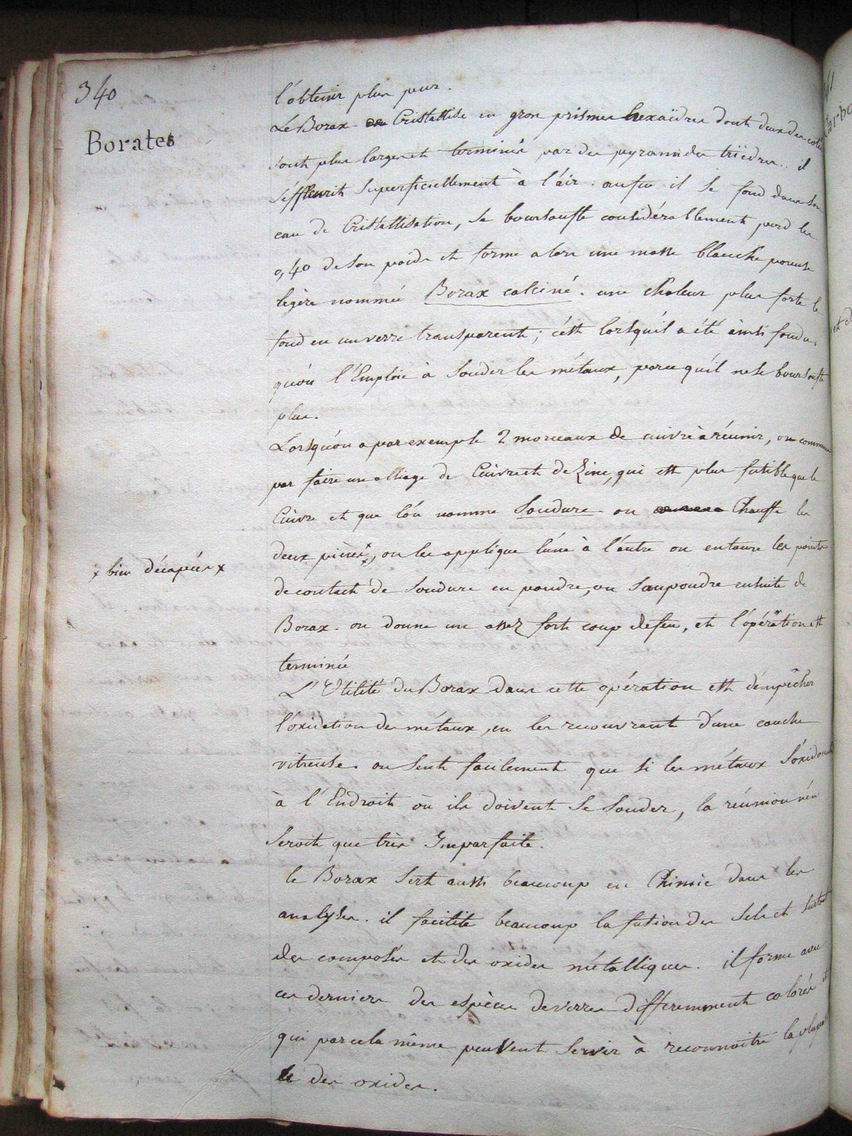 340
Borates
l'obtenir plus pur.
Le Borax Cristallise en gros prismes hexaëdres dont deux des cotés
sont plus larges et terminés par des pyramides trièdres. il
s'effleurit superficiellement à l'air. enfin il se fond dans son
eau de Cristallisation, se boursouffle considérablement perd les
0,40 de son poids et forme alors une masse blanche poreuse
légère nommée Borax calciné. une chaleur plus forte le
fond en un verre transparent; c'est lorsqu'il a été ainsi fondu,
qu'on l'Emploie à Souder les métaux, parce qu'il ne se boursouffle
plus.
Lorsqu'on a par exemple 2 morceaux de cuivre à réunir, on commence
par faire un alliage de Cuivre et de Zinc, qui est plus fusible que le
Cuivre et que l'on nomme Soudure on Chauffe les
deux pièces x, on les applique l'une à l'autre on entoure les points
x bien décapées x
de contact de Soudure en poudre, on Saupoudre ensuite de
Borax. on donne un assez forte coup de feu, et l'opération est
terminée
L'Utilité du Borax dans cette opération est d'empêcher
l'oxidation des métaux, en les recouvrant d'une couche
vitreuse. on sent facilement que si les métaux s'oxidoient
à l'Endroit où ils doivent se souder, la réunion n'en
Seroit que très Imparfaite.
le Borax sert aussi beaucoup en Chimie dans les
analyses. il facilite beaucoup la fusion des sels et surtout
des composés et des oxides métalliques. il forme avec
ces derniers des espèces de verres différemment colorés et
qui par cela même peuvent servir à reconnoitre la plupart
des oxides.